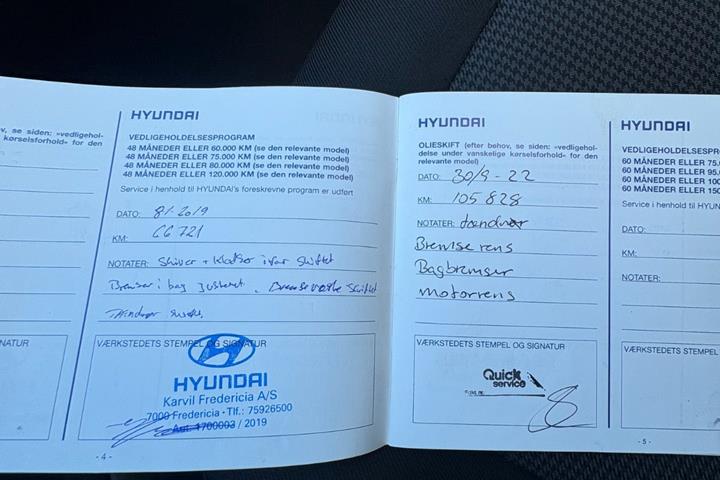 , se siden: »vedligehol-
ckørselsforhold« for den
NATUR
HYUNDAI
VEDLIGEHOLDELSESPROGRAM
48 MÅNEDER ELLER 60.000 KM (se den relevante model)
48 MÅNEDER ELLER 75.000 KM (se den relevante model)
48 MÅNEDER ELLER 80.000 KM (se den relevante model)
48 MÅNEDER ELLER 120.000 KM (se den relevante model)
Service i henhold til HYUNDAI's foreskrevne program er udført
DATO: 8/-2019
KM: 66721
NOTATER: Skiver + Klodser i for skiftet
Bremser i bag justeret. Bremsevæske skiftet
VÆRKSTEDETS STEMPEL OG SIGNATUR
HYUNDAI
Karvil Fredericia A/S
7000 Fredericia · Tlf.: 75926500
Aut. 1700003 / 2019
- 4 -
HYUNDAI
OLIESKIFT (efter behov, se siden: »vedligehol-
delse under vanskelige kørselsforhold« for den
relevante model)
DATO: 30/9-22
KM: 105828
NOTATER:
Bremse rens
Bagbremser
motorrens
VÆRKSTEDETS STEMPEL OG SIGNATUR
Quick
service
HYUNDAI
VEDLIGEHOLDELSES
60 MÅNEDER ELLER 75.
60 MÅNEDER ELLER 95.
60 MÅNEDER ELLER 100
60 MÅNEDER ELLER 150
Service i henhold til HYUN
DATO:
KM:
NOTATER:
VÆRKSTEDETS STEMPEL
- 5 -